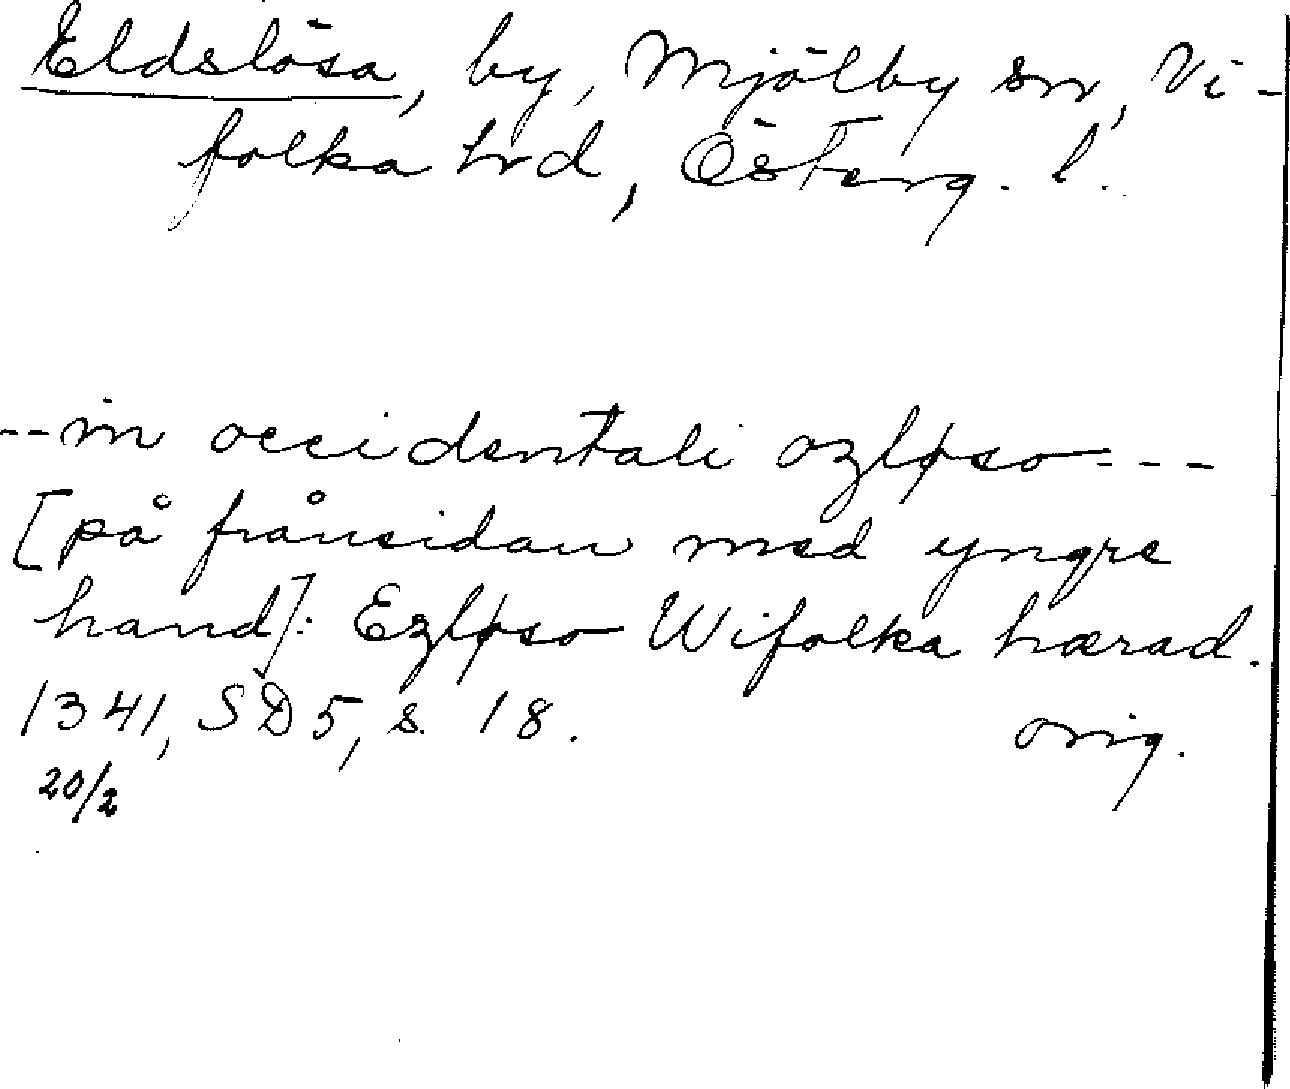 Eldslösa, by, Mjölby sn, Vi-
folka hrd, Österg. l.
--in occidentali ozløso---
[på frånsidan med yngre
hand]: Ezløso Wifolka hærad.
1341, SD 5, s. 18. orig.
20/2